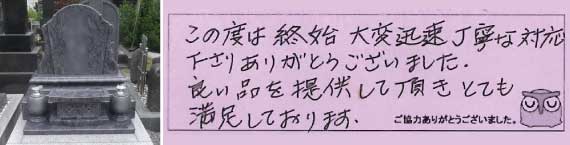 この度は終始大変迅速丁寧な対応
下さりありがとうございました.
良い品を提供して頂きとても
満足しております.
ご協力ありがとうございました。